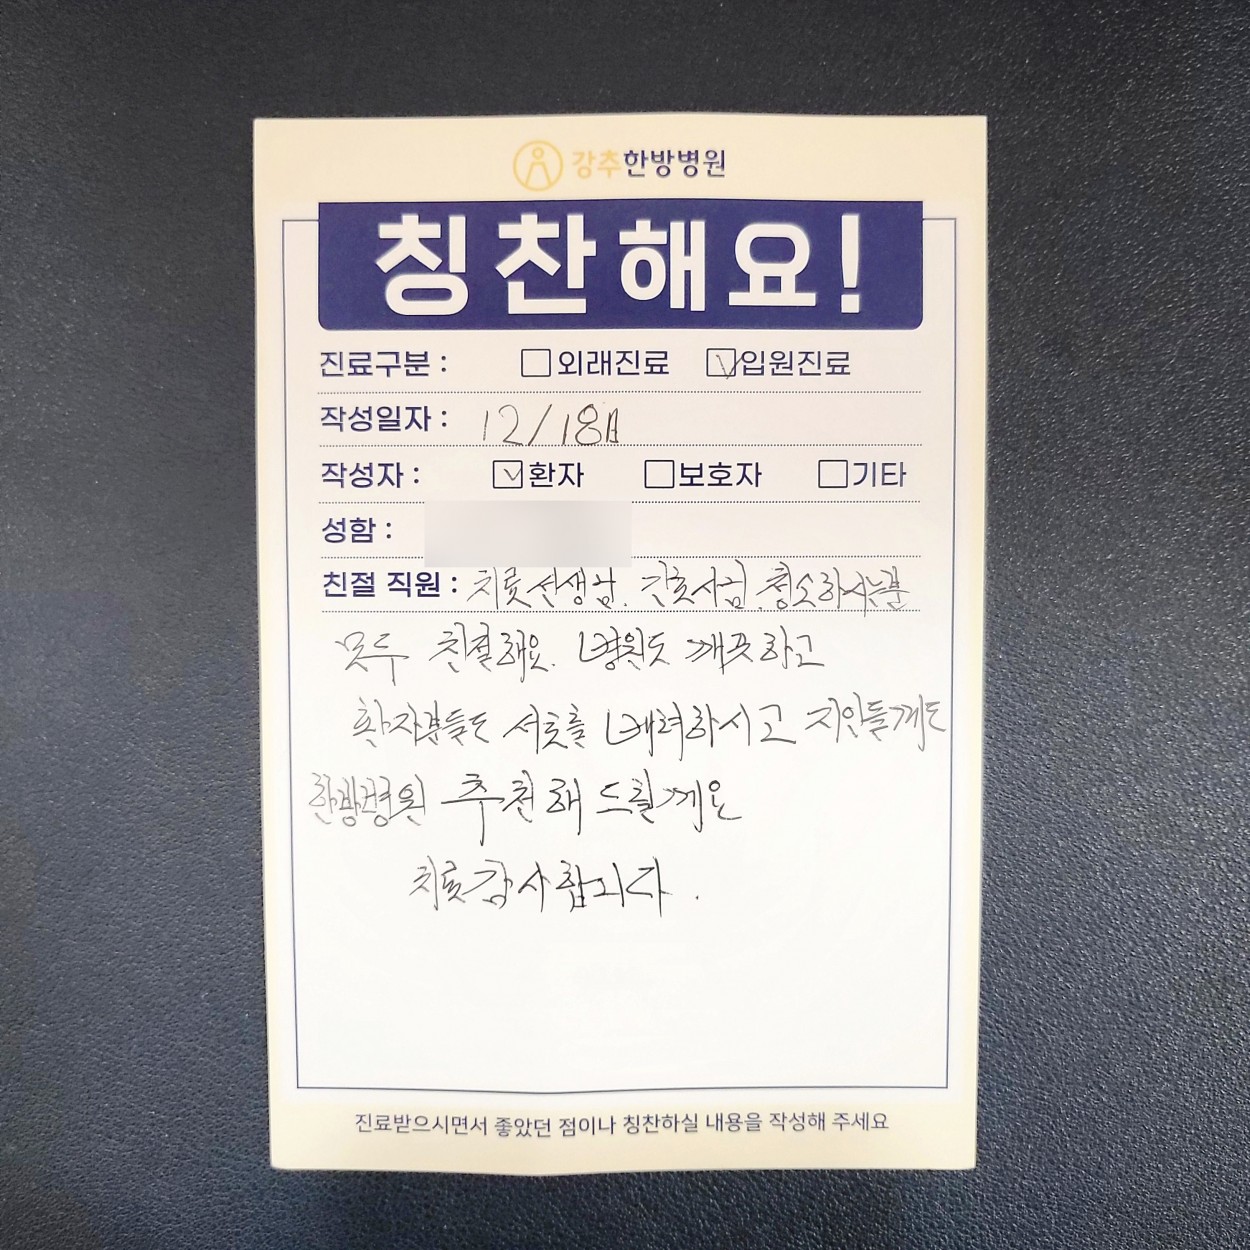 강추한방병원
칭찬해요!
진료구분 : 외래진료 입원진료
작성일자 : 12/18日
작성자 : 환자 보호자 기타
성함 :
친절 직원 : 치료선생님. 간호사님. 청소하시는분
모두 친절해요. 병원도 깨끗하고
환자분들도 서로를 배려하시고 지인들께도
한방병원 추천해 드릴께요
치료감사합니다.
진료받으시면서 좋았던 점이나 칭찬하실 내용을 작성해 주세요